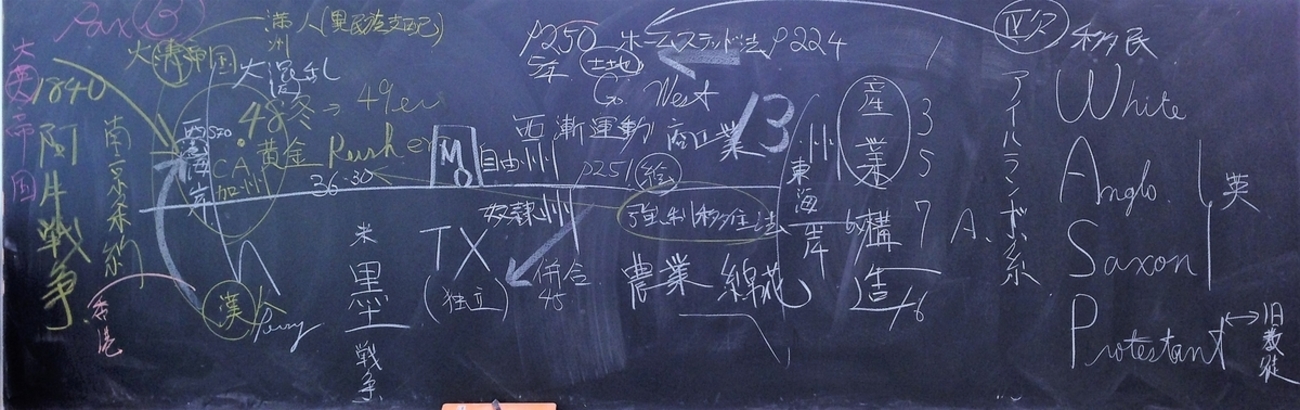 Pax B
大英帝国
1840
阿片戦争
南京条約
香港
大清帝国
満州
満人(異民族支配)
大混乱
西海岸
CA
加州
48冬→49er
黄金 Rusher
36.30
漢人
Perry
米墨戦争
P250 ホームステッド法 P224
5年 土地
Go West
西漸運動 商工業
MO
自由州
P251 絵
奴隷州
強制移住法
TX
(独立)
併合
45
農業 綿花
13州
東海岸
産業構造
1
3
5
7 A.
欧 移民
アイルランド系
White
Anglo
Saxon
Protestant
英
旧教徒